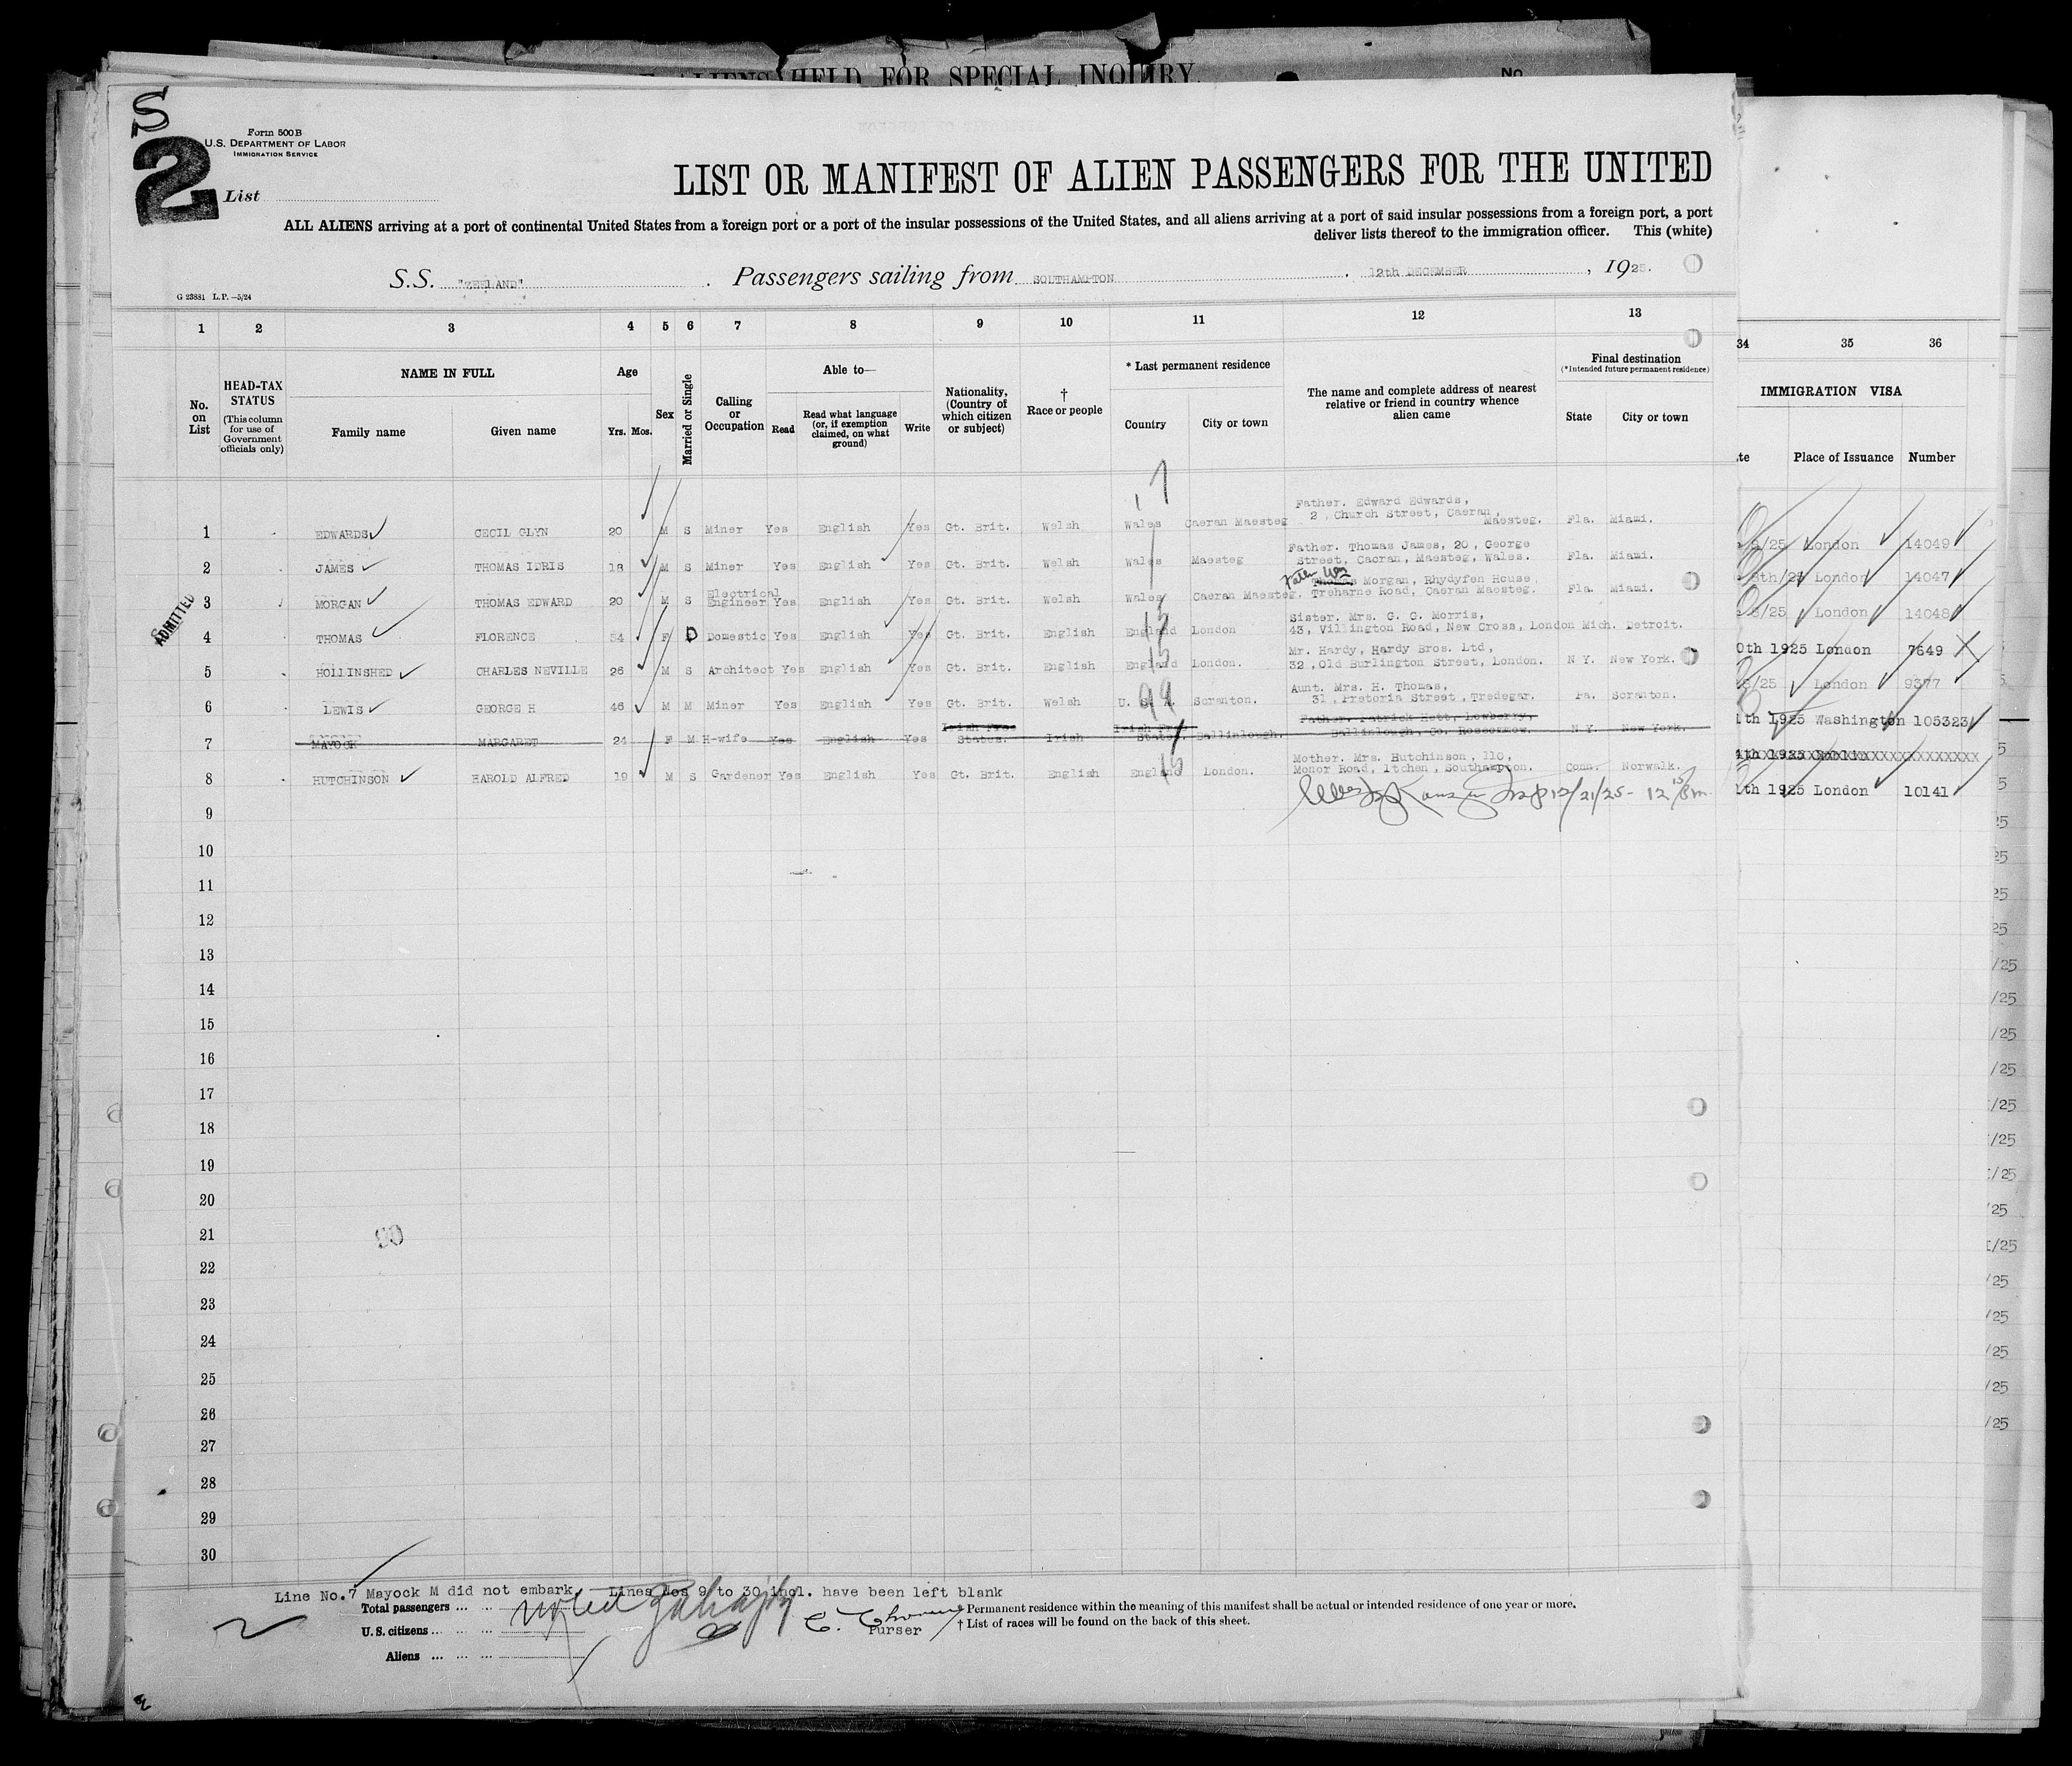 ALIENS HELD FOR SPECIAL INQUIRY
No.
S
2
Form 500B
U.S. DEPARTMENT OF LABOR
IMMIGRATION SERVICE
List
LIST OR MANIFEST OF ALIEN PASSENGERS FOR THE UNITED
ALL ALIENS arriving at a port of continental United States from a foreign port or a port of the insular possessions of the United States, and all aliens arriving at a port of said insular possessions from a foreign port, a port
deliver lists thereof to the immigration officer. This (white)
S.S. "ZEELAND". Passengers sailing from SOUTHAMPTON. 12th DECEMBER, 1925.
G 23881 L.P.—5/24
1 2 3 4 5 6 7 8 9 10 11 12 13 34 35 36
No. on List
HEAD-TAX STATUS
(This column for use of Government officials only)
NAME IN FULL
Family name Given name
Age
Yrs. Mos.
Sex
Married or Single
Calling or Occupation
Able to—
Read
Read what language (or, if exemption claimed, on what ground)
Write
Nationality, (Country of which citizen or subject)
† Race or people
* Last permanent residence
Country City or town
The name and complete address of nearest relative or friend in country whence alien came
Final destination
(*Intended future permanent residence)
State City or town
IMMIGRATION VISA
Place of Issuance Number
ADMITTED
1 EDWARDS CECIL GLYN 20 M S Miner Yes English Yes Gt. Brit. Welsh Wales Caeran Maesteg Father. Edward Edwards, 2, Church Street, Caeran, Maesteg. Fla. Miami. 8/25 London 14049
2 JAMES THOMAS IDRIS 18 M S Miner Yes English Yes Gt. Brit. Welsh Wales Maesteg Father. Thomas James, 20, George Street, Caeran, Maesteg, Wales. Fla. Miami. 8th/25 London 14047
3 MORGAN THOMAS EDWARD 20 M S Electrical Engineer Yes English Yes Gt. Brit. Welsh Wales Caeran Maesteg. Father Wm Thomas Morgan, Rhydyfen House, Treharne Road, Caeran Maesteg. Fla. Miami. 8/25 London 14048
4 THOMAS FLORENCE 54 F D Domestic Yes English Yes Gt. Brit. English England London Sister. Mrs. G. G. Morris, 43, Villington Road, New Cross, London Mich. Detroit. 0th 1925 London 7649
5 HOLLINSHED CHARLES NEVILLE 26 M S Architect Yes English Yes Gt. Brit. English England London. Mr. Hardy, Hardy Bros. Ltd, 32, Old Burlington Street, London. N Y. New York. 8/25 London 9377
6 LEWIS GEORGE H 46 M M Miner Yes English Yes Gt. Brit. Welsh U. S. A. Scranton. Aunt. Mrs. H. Thomas, 31, Pretoria Street, Tredegar. Pa. Scranton. 1th 1925 Washington 105323
7 MAYOCK MARGARET 24 F M H-wife Yes English Yes Irish Free States. Irish Irish Free State. Ballinlough. Father. Patrick Hett, Lowberry, Ballinlough, Co. Roscommow. N.Y. New York. 4th 1925 Dublin
8 HUTCHINSON HAROLD ALFRED 19 M S Gardener Yes English Yes Gt. Brit. English England London. Mother. Mrs. Hutchinson, 110, Monor Road, Itchen, Southampton. Conn. Norwalk. 1th 1925 London 10141
12/21/25 - 12
9
10
11
12
13
14
15
16
17
18
19
20
21
22
23
24
25
26
27
28
29
30
Line No.7 Mayock M did not embark. Lines Nos 9 to 30 incl. have been left blank
Total passengers ... ...
U.S. citizens ... ...
Aliens ... ... ...
Purser
* Permanent residence within the meaning of this manifest shall be actual or intended residence of one year or more.
† List of races will be found on the back of this sheet.